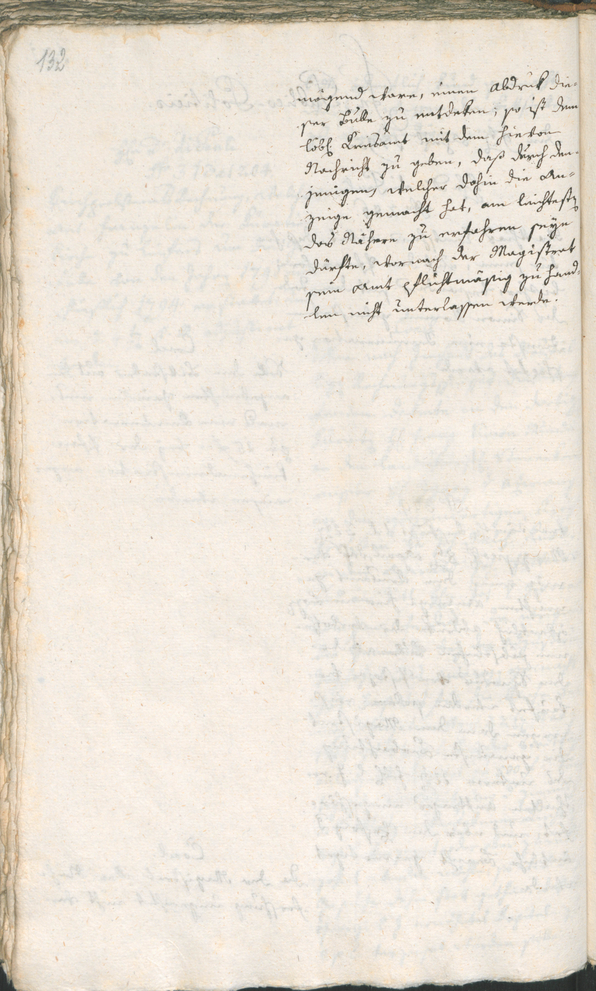 132
mögend wäre, einen Abdruck die-
ser Bulle zu entdeken; so ist dem
löbl Kreisamt mit dem hievon
Nachricht zu geben, daß durch den-
jenigen, welcher dahin die An-
zeige gemacht hat, am leichtesten
das Nähere zu erfahren seyn
dürfte, wornach der Magistrat
sein Amt pflichtmäßig zu hand-
len nicht unterlassen werde.